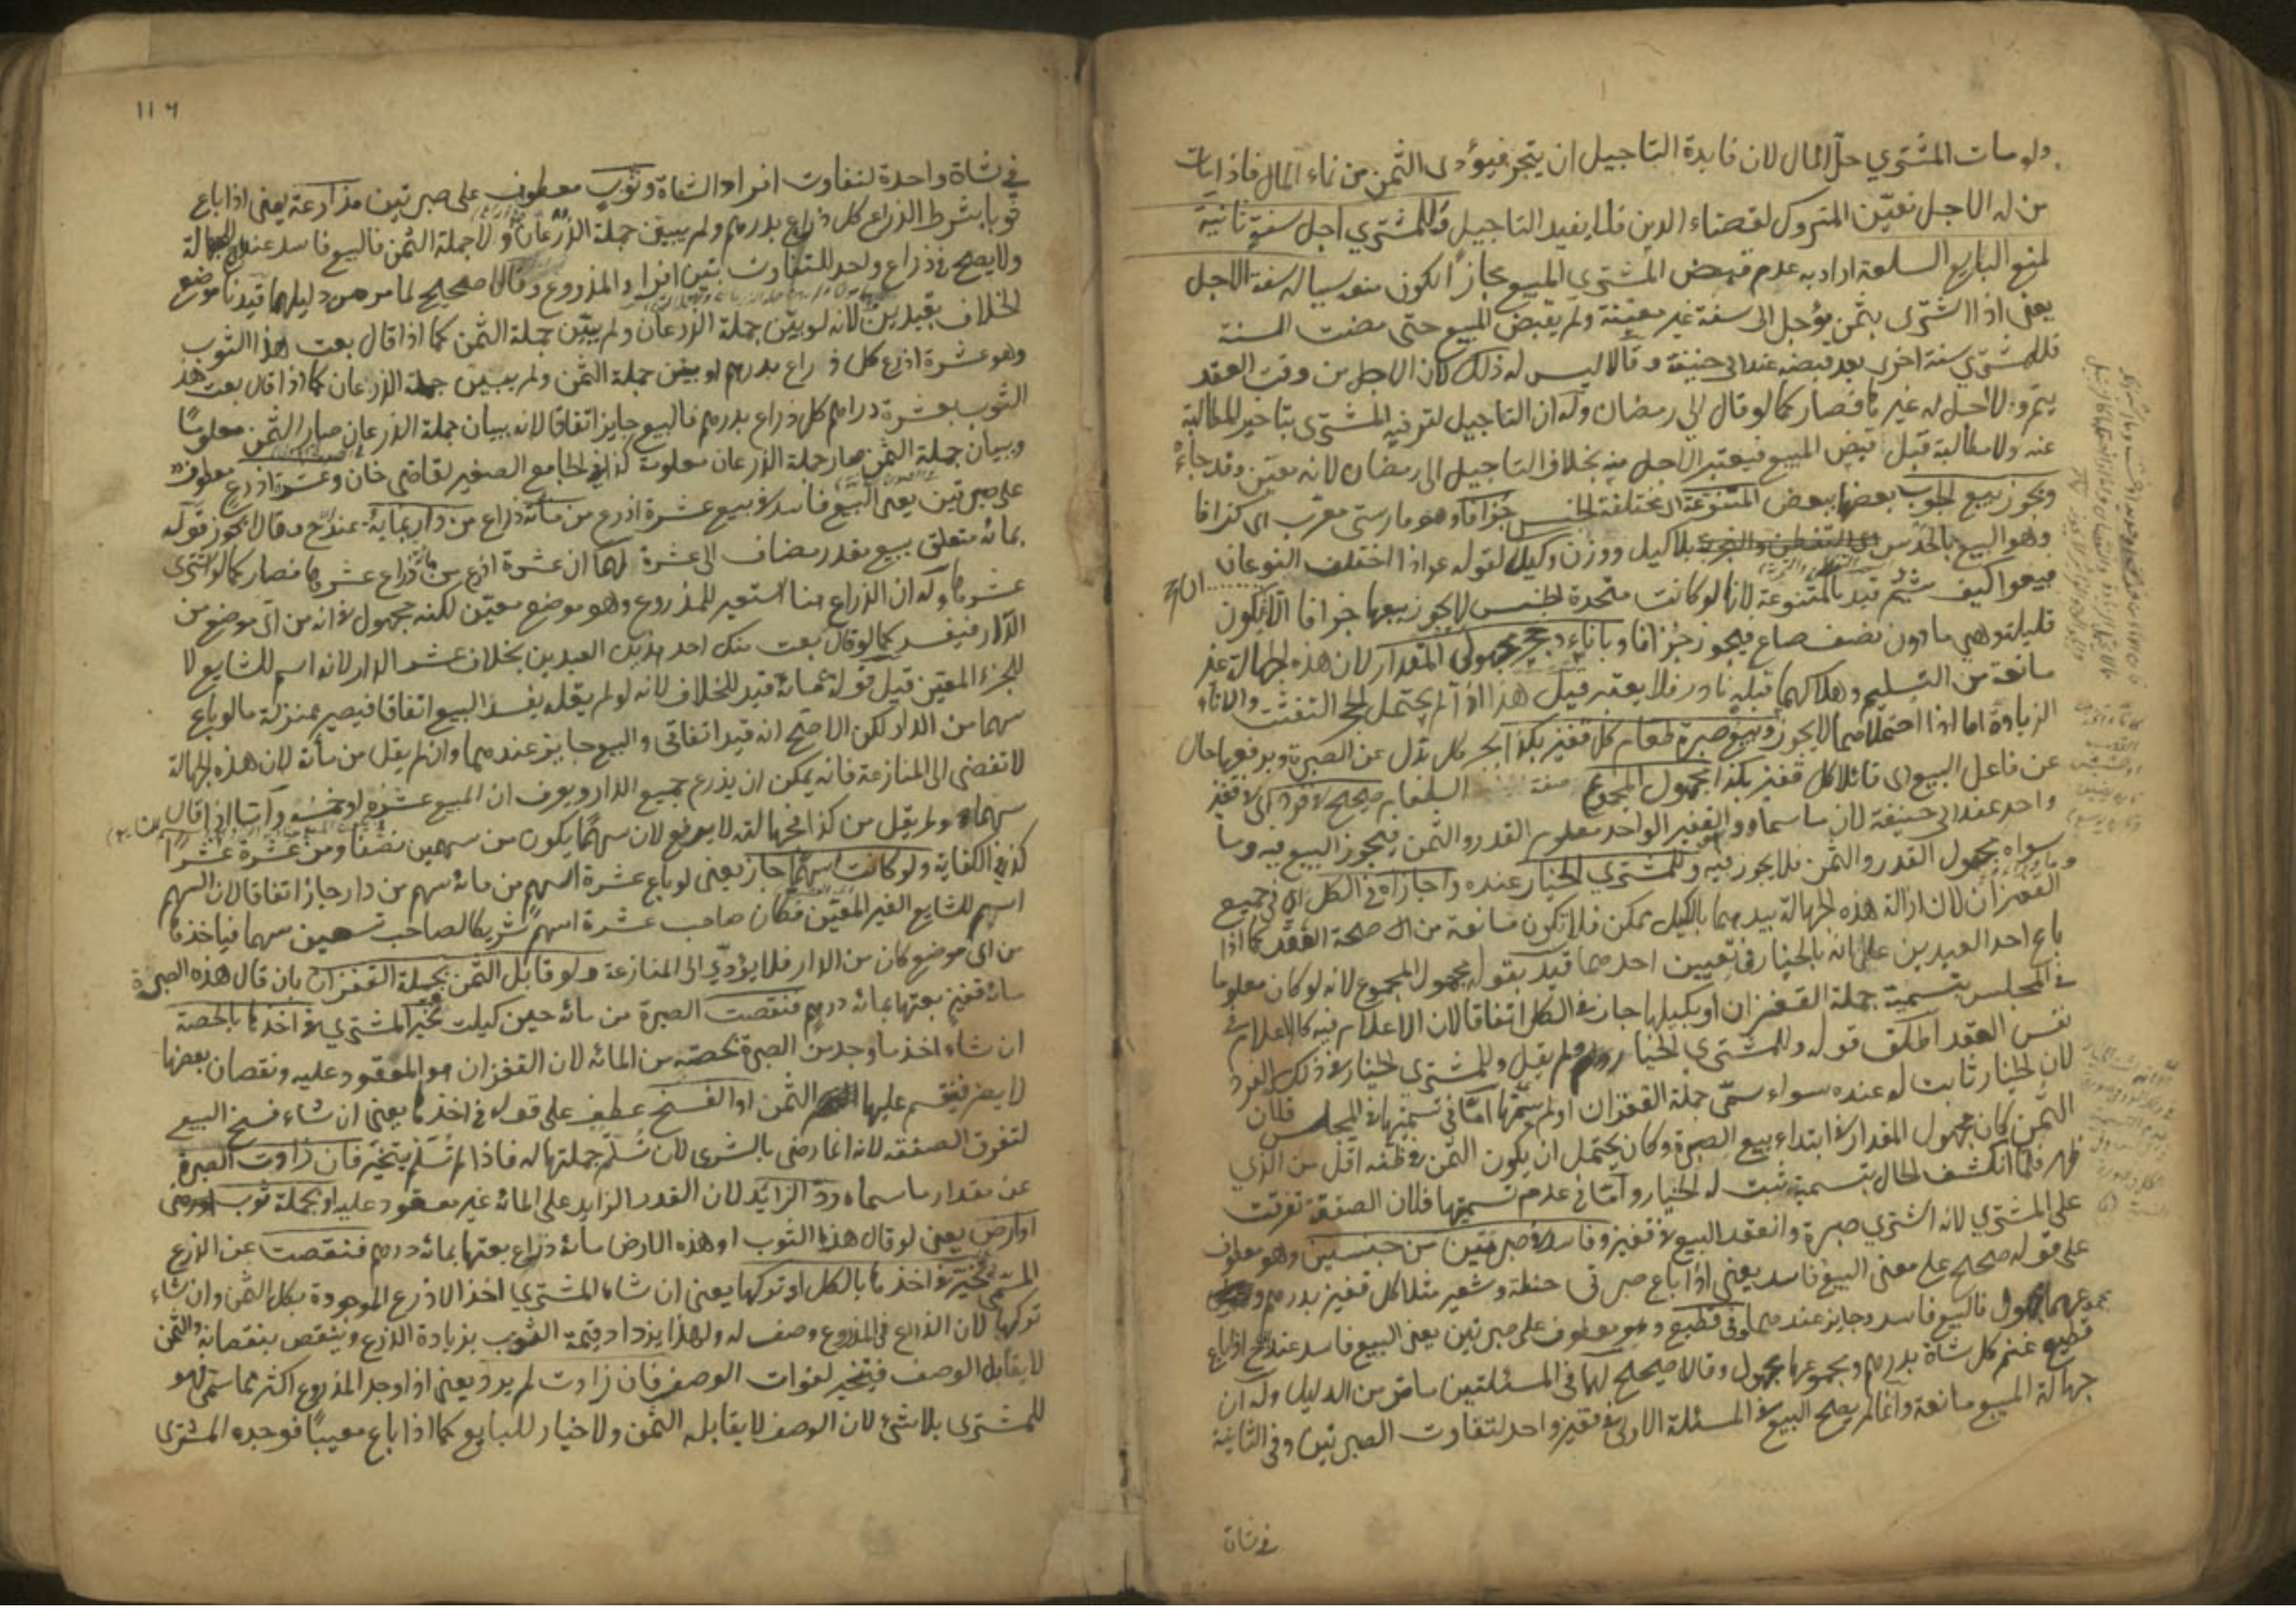 ولو مات المشتري حل المال لان فايدة التاجيل ان يتجر فيؤدى الثمن من نماء المال فاذا مات
من له الاجل تعيّن المتروك لقضاء الدين فلا يفيد التاجيل وللمشتري اجل سنة ثانية
لمنع البايع السلعة اراد به عدم قبض المشتري المبيع مجازا لكون منعه سببا له سنة الاجل
يعنى اذا اشترى بثمن مؤجل الى سنة غير معينة ولم يقبض المبيع حتى مضت السنة
فللمشتري سنة اخرى بعد قبضه عند ابى حنيفة وقالا ليس له ذلك لان الاجل من وقت العقد
يتم ولا اجل له غيره فصار كما لو قال الى رمضان وله ان التاجيل لترفيه المشترى بتاخير المطالبة
عنه ولا مطالبة قبل قبض المبيع فيعتبر الاجل منه بخلاف التاجيل الى رمضان لانه معيّن وقد جاء
ويجوز بيع الحبوب بعضها ببعض المتنوعة اى مختلفة الجنس جزافا وهو فارسي معرّب اى كزافا
وهو البيع بالحدس بلا كيل ووزن وكيل لقوله عم اذا اختلف النوعان
فبيعوا كيف شئتم قيد بالمتنوعة لانها لو كانت متحدة الجنس لا يجوز بيعها جزافا الا ان يكون
قليلة وهي ما دون نصف صاع فيجوز جزافا وباناء وحجر مجهولى المقدار لان هذه الجهالة غير
مانعة من التسليم وهلاكهما قبله نادر فلا يعتبر قيل هذا اذا لم يحتمل الحجر التفتت والاناء
الزيادة اما اذا احتملاهما لا يجوز وبيع صبرة طعام كل قفيز بكذا بجر كل بدل عن الصبرة وبرفعها حال
عن فاعل البيع اى قائلا كل قفيز بكذا مجهول المجموع صفة الطعام صحيح لا فرد اى لا قفيز
واحد عند ابى حنيفة لان ما سماه وهو القفيز الواحد معلوم القدر والثمن فيجوز البيع فيه وما
سواه مجهول القدر والثمن فلا يجوز فيه وللمشتري الخيار عنده واجازاه فى الكل اى فى جميع
القفزان لان ازالة هذه الجهالة بيدهما بالكيل ممكن فلا تكون مانعة من صحة العقد كما اذا
باع احد العبدين على انه بالخيار فى تعيين احدهما قيد بقوله مجهول المجموع لانه لو كان معلوما
فى المجلس بتسمية جملة القفزان او بكيلها جاز فى الكل اتفاقا لان الاعلام فيه كالاعلام فى
نفس العقد اطلق قوله وللمشترى الخيار ولم يقل وللمشترى الخيار فى ذلك الفرد
لان الخيار ثابت له عنده سواء سمّى جملة القفزان او لم يسمّها امّا فى تسميتها فى المجلس فلان
الثمن كان مجهول المقدار فى ابتداء بيع الصبرة وكان يحتمل ان يكون الثمن فى ظنه اقل من الذي
ظهر فلما انكشف الحال بتسميته ثبت له الخيار وامّا فى عدم تسميتها فلان الصفقة تفرقت
على المشتري لانه اشترى صبرة وانعقد البيع فى قفيز وفاسد فى صبرتين من جنسين وهو معطوف
على قوله صحيح على معنى البيع فاسد يعنى اذا باع صبرتى حنطة وشعير مثلا كل قفيز بدرهم
مجموعهما مجهول فالبيع فاسد وجايز عندهما وفى قطيع وهو معطوف على صبرتين يعنى البيع فاسد عند ح اذا باع
قطيع غنم كل شاة بدرهم ومجموعها مجهول وقالا صحيح لهما فى المسئلتين ما مر من الدليل وله ان
جهالة المبيع مانعة وانما لم يصح البيع فى المسئلة الاولى فى قفيز واحد لتفاوت الصبرتين وفى الثانية
فى شاة
١١٦
في شاة واحدة لتفاوت افراد الشاة وثوب معطوف على صبرتين مذارعة يعنى اذا باع
ثوبا بشرط الذراع كل ذراع بدرهم ولم يبين جملة الذرعان ولا جملة الثمن فالبيع فاسد عنده للجهالة
ولا يصح فى ذراع واحد للتفاوت بين افراد المذروع وقالا صحيح لما مر من دليلهما قيدنا موضع
الخلاف بقيدين لانه لو بيّن جملة الذرعان ولم يبيّن جملة الثمن كما اذا قال بعت هذا الثوب
وهو عشرة اذرع كل ذراع بدرهم او بيّن جملة الثمن ولم يبين جملة الذرعان كما اذا قال بعت هذا
الثوب بعشرة دراهم كل ذراع بدرهم فالبيع جايز اتفاقا لانه ببيان جملة الذرعان صار الثمن معلوما
وببيان جملة الثمن صار جملة الذرعان معلومة كذا فى الجامع الصغير لقاضى خان وعشرة اذرع معطوف
على صبرتين يعنى البيع فاسد فى بيع عشرة اذرع من مائة ذراع من دار بمائة عند ح وقالا يجوز قوله
بمائة متعلق ببيع مقدر مضاف الى عشرة لهما ان عشرة اذرع من مائة ذراع عشرها فصار كما لو اشترى
عشرها وله ان الذراع هنا استعير للمذروع وهو موضع معيّن لكنه مجهول لانه من اى موضع من
الدار فيفسد كما لو قال بعت منك احد هذين العبدين بخلاف عشر الدار لانه اسم للشايع لا
للجزء المعين قيل قوله بمائة قيد للخلاف لانه لو لم يقله يفسد البيع اتفاقا فيصير بمنزلة ما لو باع
سهما من الدار لكن الاصح انه قيد اتفاقى والبيع جايز عندهما وان لم يقل من مائة لان هذه الجهالة
لا تفضى الى المنازعة فانه يمكن ان يذرع جميع الدار ويعرف ان المبيع عشره او خمسه وامّا اذا قال
سهما ولم يقل من كذا فجهالته لا يرتفع لان سهما يكون من سهمين نصفا ومن عشرة عشرا
كذا فى الكفاية ولو كانت اسهما جاز يعنى لو باع عشرة اسهم من مائة سهم من دار جاز اتفاقا لان السهم
اسم للشايع الغير المعيّن فكان صاحب عشرة اسهم شريكا لصاحب تسعين سهما فياخذها
من اى موضع كان من الدار فلا يؤدّي الى المنازعة ولو قابل الثمن بجملة القفزان بان قال هذه الصبرة
مائة قفيز بعتها بمائة درهم فنقصت الصبرة من مائة حين كيلت تخير المشتري فى اخذها بالحصة
ان شاء اخذ ما وجد من الصبرة بحصته من المائة لان القفزان هو المعقود عليه ونقصان بعضها
لا يضر فيقسم عليها الثمن او الفسخ عطف على قوله فى اخذها يعنى ان شاء فسخ البيع
لتفرق الصفقة لانه انما رضى بالشرى لان تسلّم جملتها له فاذا لم تسلّم يتخير فان زادت الصبرة
عن مقدار ما سماه ردّ الزائد لان القدر الزايد على المائة غير معقود عليه او بجملة ثوب
او ارض يعنى لو قال هذا الثوب او هذه الارض مائة ذراع بعتها بمائة درهم فنقصت عن الذرع
المسمّى تخير فى اخذها بالكل او تركها يعنى ان شاء المشتري اخذ الاذرع الموجودة بكل الثمن وان شاء
تركها لان الذراع فى المذروع وصف له ولهذا يزداد قيمة الثوب بزيادة الذرع وينقص بنقصانه والثمن
لا يقابل الوصف فيتخير لفوات الوصف فان زادت لم يرد يعنى اذا وجد المذروع اكثر مما سمّى فهو
للمشترى بلا شئ لان الوصف لا يقابله الثمن ولا خيار للبايع كما اذا باع معيبا فوجده المشترى